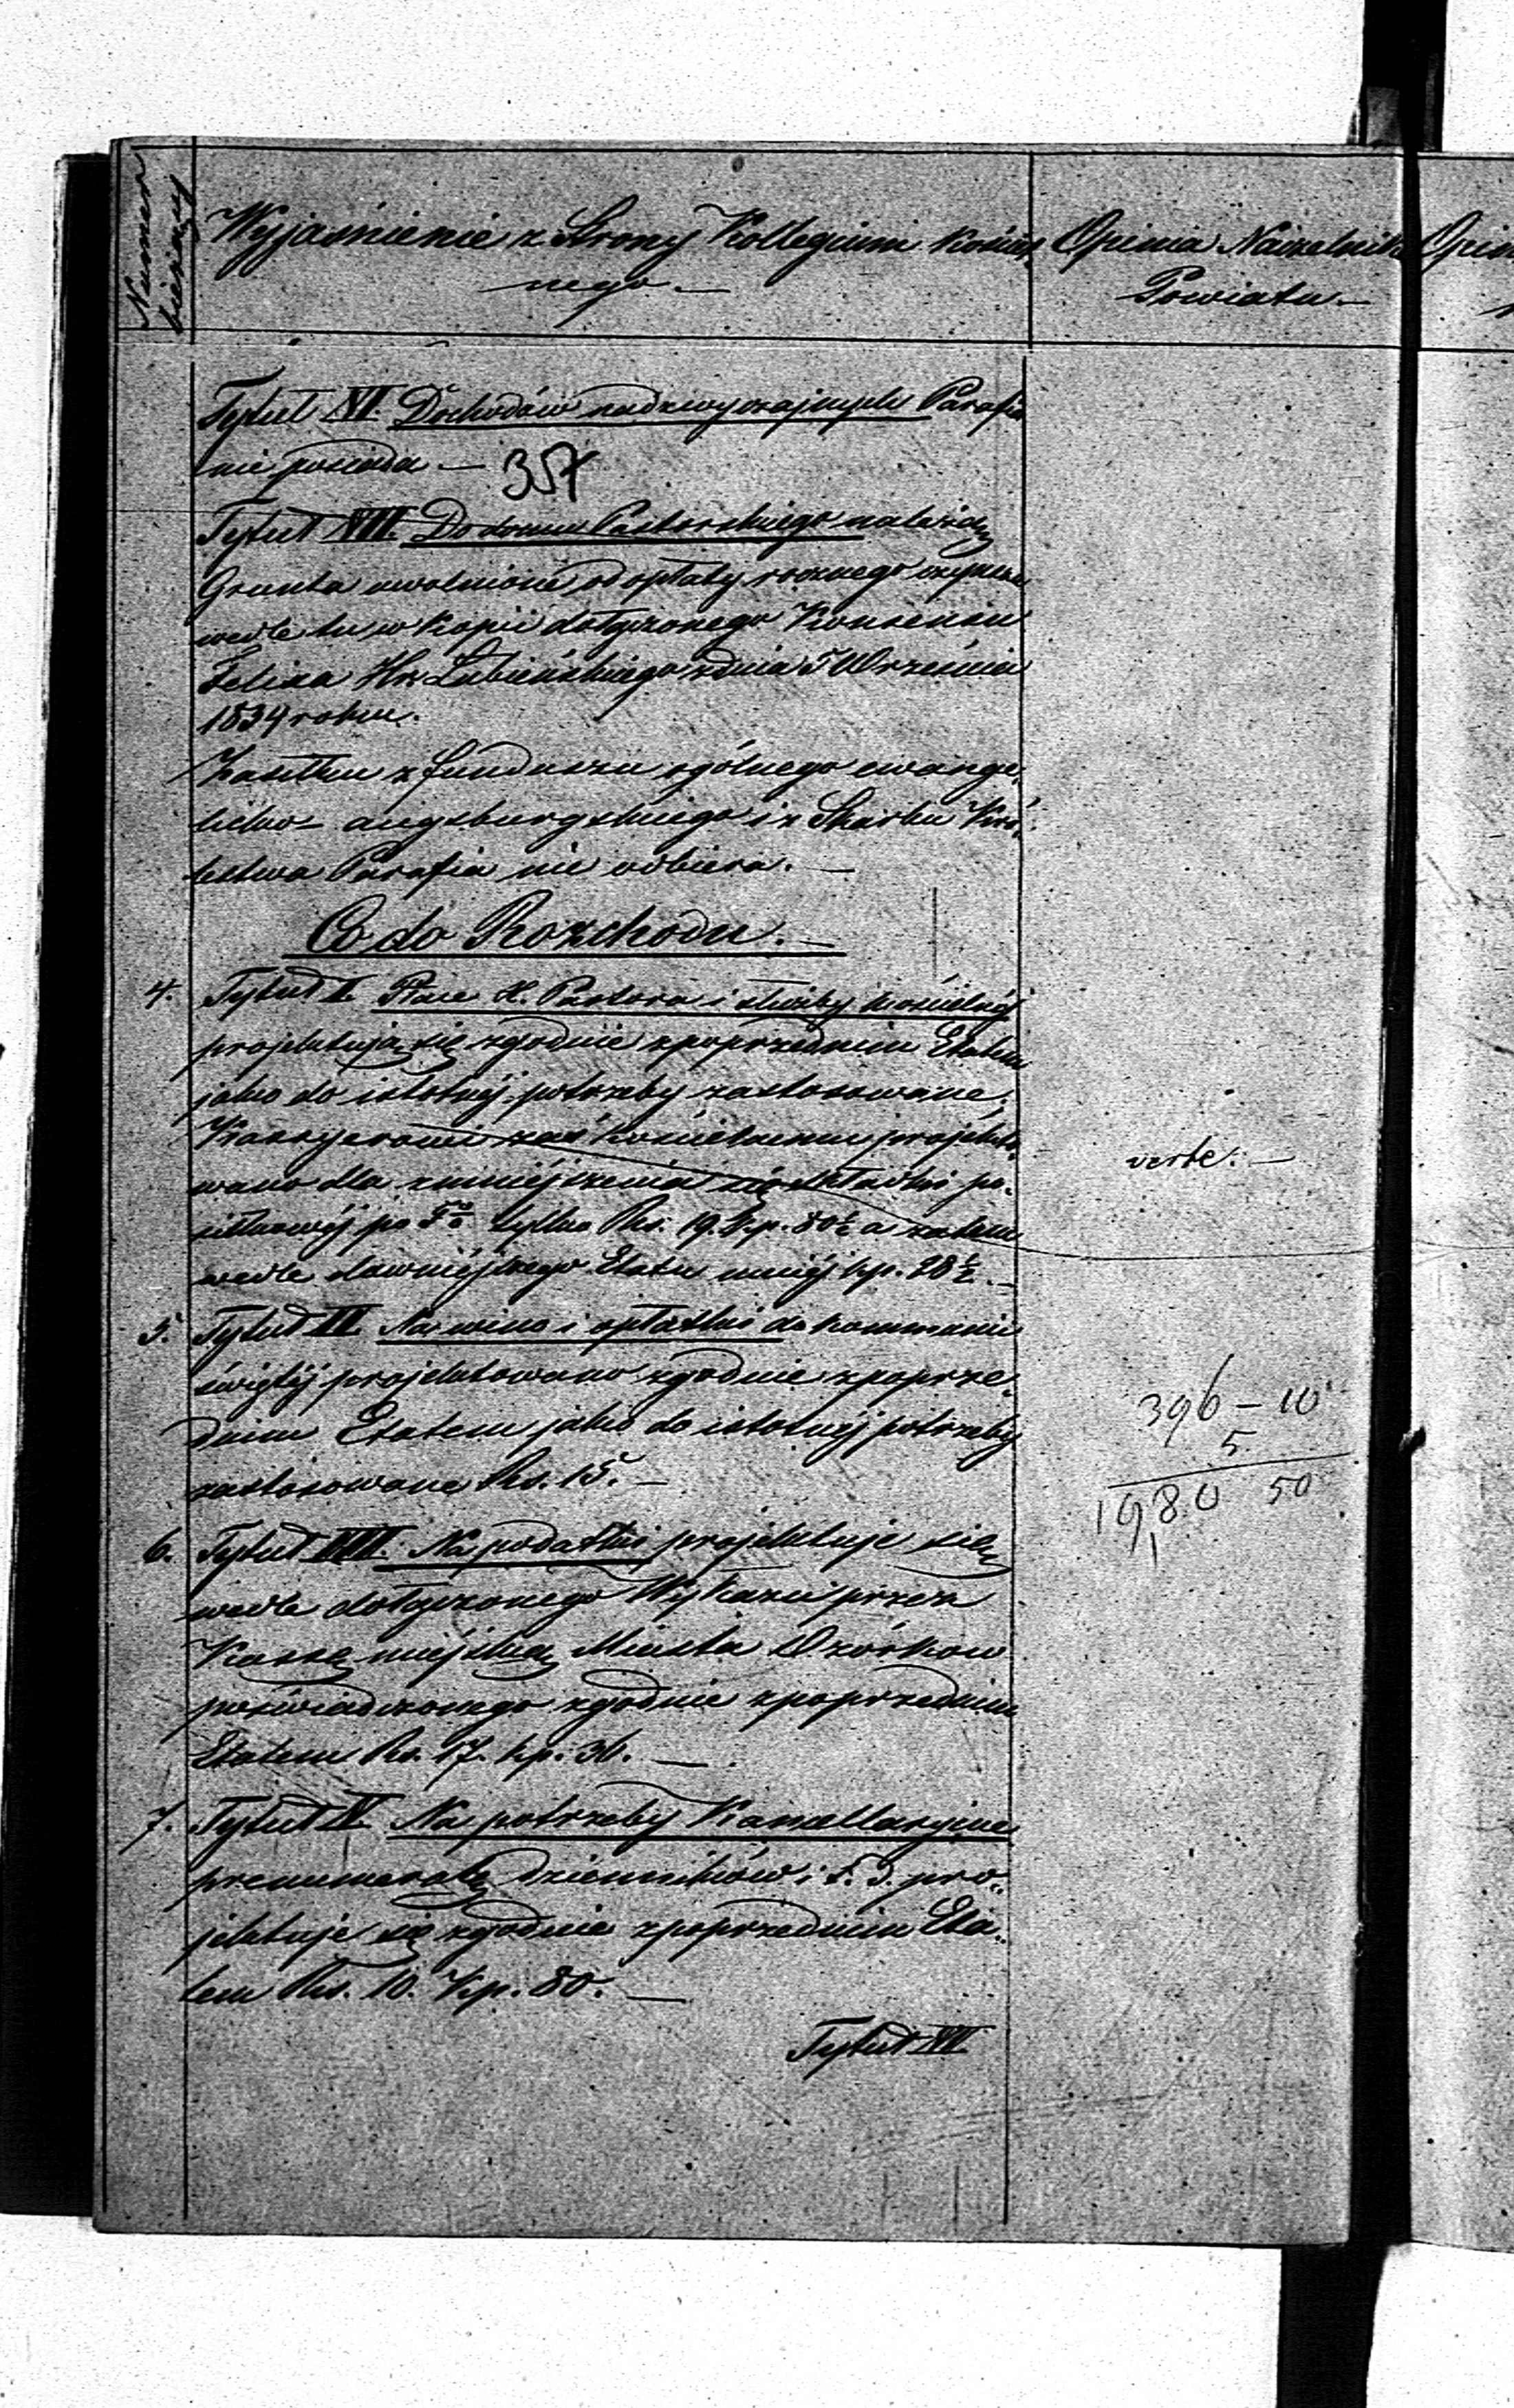 Numer
bieżący
Wyjaśnienie z Strony Kollegium Kościel
nego.—
Opinia Naczelnika
Powiatu.—
Opin
Tytuł VI. Dochodów nadzwyczajnych Parafia
nie posiada.—
357
Tytuł VII. Do domu Pastorskiego należą
Grunta uwolnione od opłaty rocznego czynszu
wedle tu w kopii dołączonego Konsensu
Felixa Hr. Łubieńskiego z dnia 5 Września
1834 roku.
Zasiłku z funduszu ogólnego ewange-
licko-augsburgskiego i z Skarbu Kró-
lestwa Parafia nie odbiera.—
Co do Rozchodu.—
4. Tytuł I. Płace X. Pastora i służby kościelnej
projektują się zgodnie z poprzednim Etatem
jako do istotnéj potrzeby zastosowane,
Kassyerowi zaś kościelnemu projekto-
wano dla zmniejszenia się składki po-
siłkowéj po 5% tylko Rs. 19. kp. 80½ a zatem
wedle dawniejszego Etatu mniéj kp. 28½.—
verte.—
5. Tytuł II. Na wino i opłatki do kommunii
świętéj projektowano zgodnie z poprze-
dnim Etatem jako do istotnéj potrzeby
zastosowane Rs. 15.—
396 – 10
5
1980 50
6. Tytuł III. Na podatki projektuje się
wedle dołączonego Wykazu przez
Kassę miejską Miasta Ozorkow
poświadczonego zgodnie z poprzednim
Etatem Rs. 17. kp. 36.—
7. Tytuł V. Na potrzeby Kancellaryjne
prenumeratę dzienników i t. d. pro-
jektuje się zgodnie z poprzednim Eta-
tem Rs. 10. Kp. 80.—
Tytuł VI.